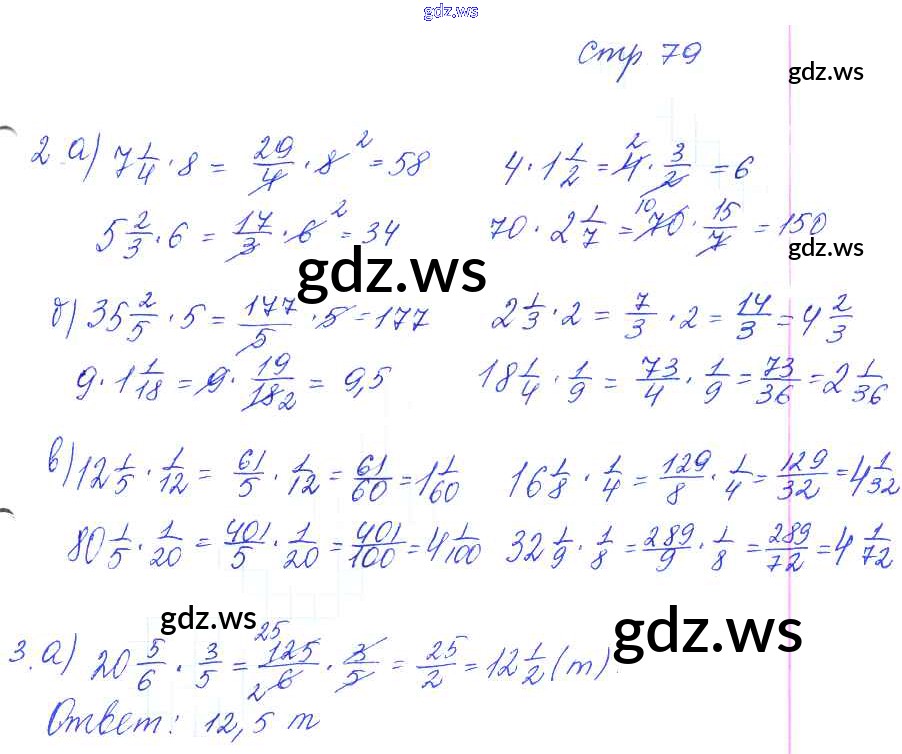 gdz.ws
стр 79
gdz.ws
2. а) 7 1/4 · 8 = 29/4 · 8 2 = 58    4 · 1 1/2 = 2 4 · 3/2 = 6
5 2/3 · 6 = 17/3 · 6 2 = 34    70 · 2 1/7 = 10 70 · 15/7 = 150
gdz.ws
gdz.ws
б) 35 2/5 · 5 = 177/5 · 5 = 177    2 1/3 · 2 = 7/3 · 2 = 14/3 = 4 2/3
9 · 1 1/18 = 9 · 19/18 2 = 9,5    18 1/4 · 1/9 = 73/4 · 1/9 = 73/36 = 2 1/36
в) 12 1/5 · 1/12 = 61/5 · 1/12 = 61/60 = 1 1/60    16 1/8 · 1/4 = 129/8 · 1/4 = 129/32 = 4 1/32
80 1/5 · 1/20 = 401/5 · 1/20 = 401/100 = 4 1/100    32 1/9 · 1/8 = 289/9 · 1/8 = 289/72 = 4 1/72
gdz.ws
gdz.ws
3. а) 20 5/6 · 3/5 = 25 125/2 6 · 3/5 = 25/2 = 12 1/2 (т).
Ответ: 12,5 т